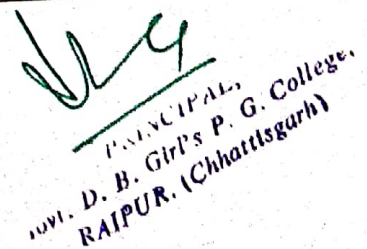 PRINCIPAL,
Govt. D. B. Girl's P. G. College,
RAIPUR. (Chhattisgarh)